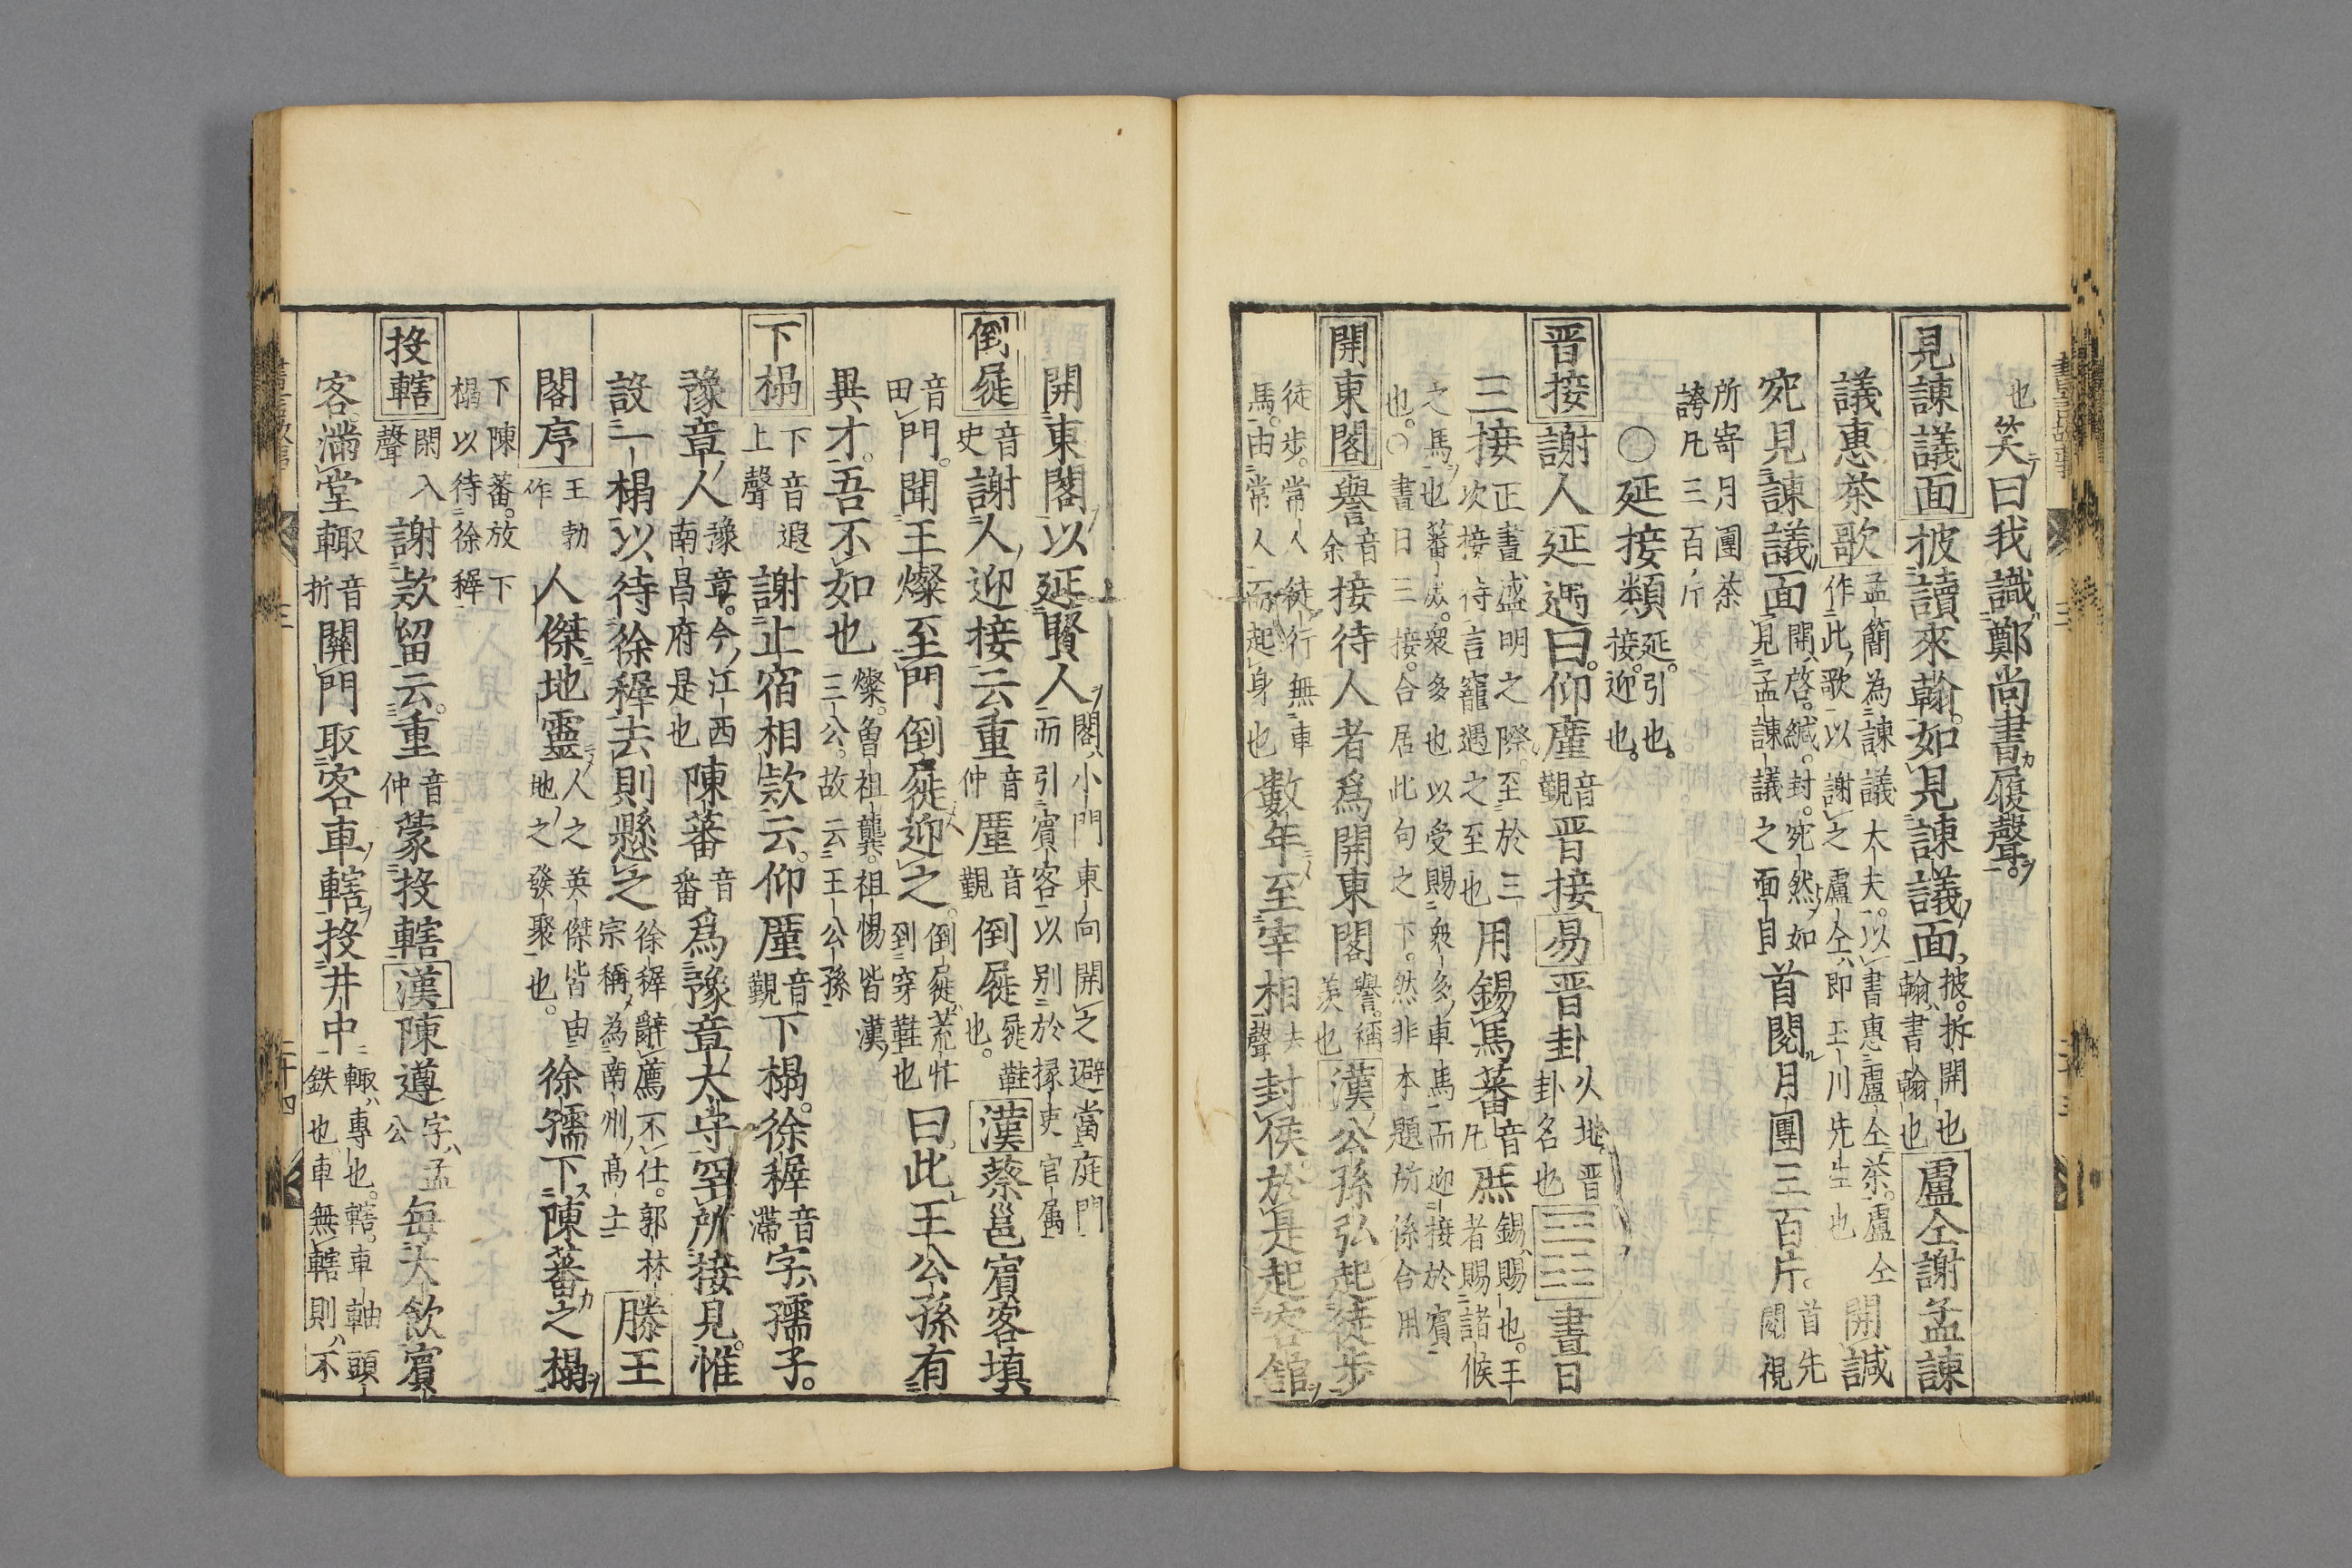 也笑曰我識鄭尚書履聲。
見諫議面披讀來翰。如見諫議面、披。拆開也翰書翰也盧仝謝孟諫
議惠茶歌孟簡為諫議大夫。以書惠盧仝茶。盧仝作此歌以謝之盧仝即玉川先生也開諴
宛見諫議面開啓。緘。封。宛然如見孟諫議之面目首閱月團三百片。首先閱視
所寄月團茶誇凡三百斤
〇延接類延。引也。接。迎也。
晋接謝人延遇曰。仰廑音覲晋接易晋卦火地晋卦名也三三晝日
三接正晝盛明之際。至於三次接待言寵遇之至也用錫馬蕃音凡庶錫賜也。王者賜諸侯
之馬也蕃庶。衆多也以受賜衆多車馬而迎接於賓也。〇書曰三接。合居此句之下。然非本題所係合用
開東閣譽音余接待人者爲開東閣譽。稱羨也漢公孫弘起徒步
徒步。常人徒行無車馬。由常人而起身也數年至宰相去聲封侯。於是起客館
開東閣以延賢人閣小門東向開之避當庭門而引賓客以别於掾吏官属
倒屣音史謝人迎接云重音仲廑音覲倒屣屣鞋也。漢蔡邕賓客填
音田門。聞王燦至門倒屣迎之。倒屣荒忙到穿鞋也曰此王公孫有
異才。吾不如也燦。魯祖龔。祖惕皆漢三公。故云王公孫
下榻下音遐上聲謝止宿相欵云。仰廑音覲下榻。徐穉音滯字孺子。
豫章人豫章。今江西南昌府是也陳蕃音番爲豫章太守罕所接見。惟
設一榻以待徐穉去則懸之徐穉辭薦不仕。郭林宗稱為南州高士滕王
閣序王勃作人傑地靈人之英傑皆由地之發聚也。徐孺下陳蕃之榻
下陳蕃。放下榻以待徐穉
投轄閑入聲謝欵留云。重音仲蒙投轄漢陳遵字孟公每大飲賓
客滿堂輙音折關門取客車轄投井中輙專也。轄。車軸頭鉄也車無轄則不